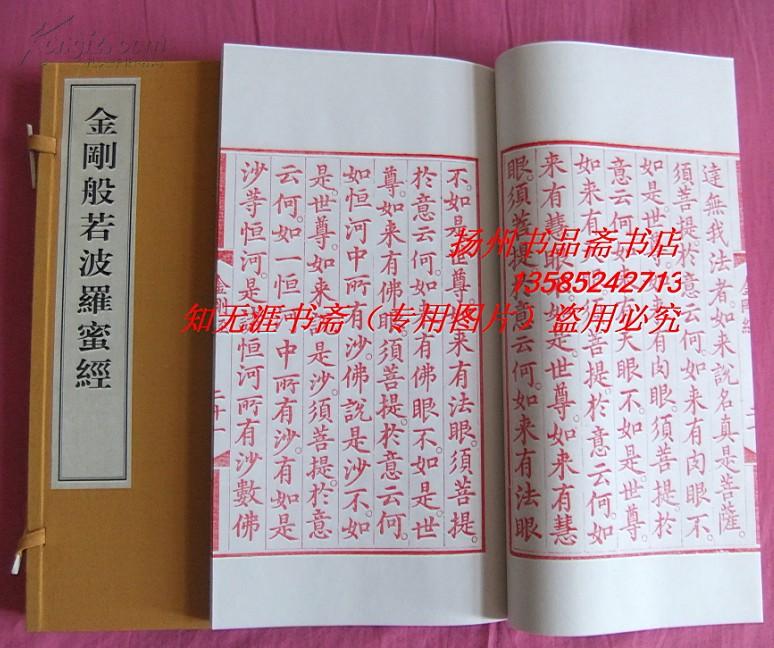 金剛般若波羅蜜經
達無我法者。如来說名真是菩薩。
須菩提於意云何如来有肉眼不。
如是。世尊。如来有肉眼。須菩提於
意云何。如来有天眼不。如是。世尊。
如来有天眼。須菩提。於意云何。如
来有慧眼不。如是。世尊。如来有慧
眼。須菩提。於意云何。如来有法眼
不。如是。世尊。如来有法眼。須菩提。
於意云何。如来有佛眼不。如是。世
尊。如来有佛眼。須菩提。於意云何。
如恒河中所有沙。佛說是沙不。如
是。世尊。如来說是沙。須菩提。於意
云何。如一恒河中所有沙。有如是
沙等恒河。是諸恒河所有沙數佛
金剛經
二十一
扬州书品斋书店
13585242713
知无涯书斋（专用图片）盗用必究